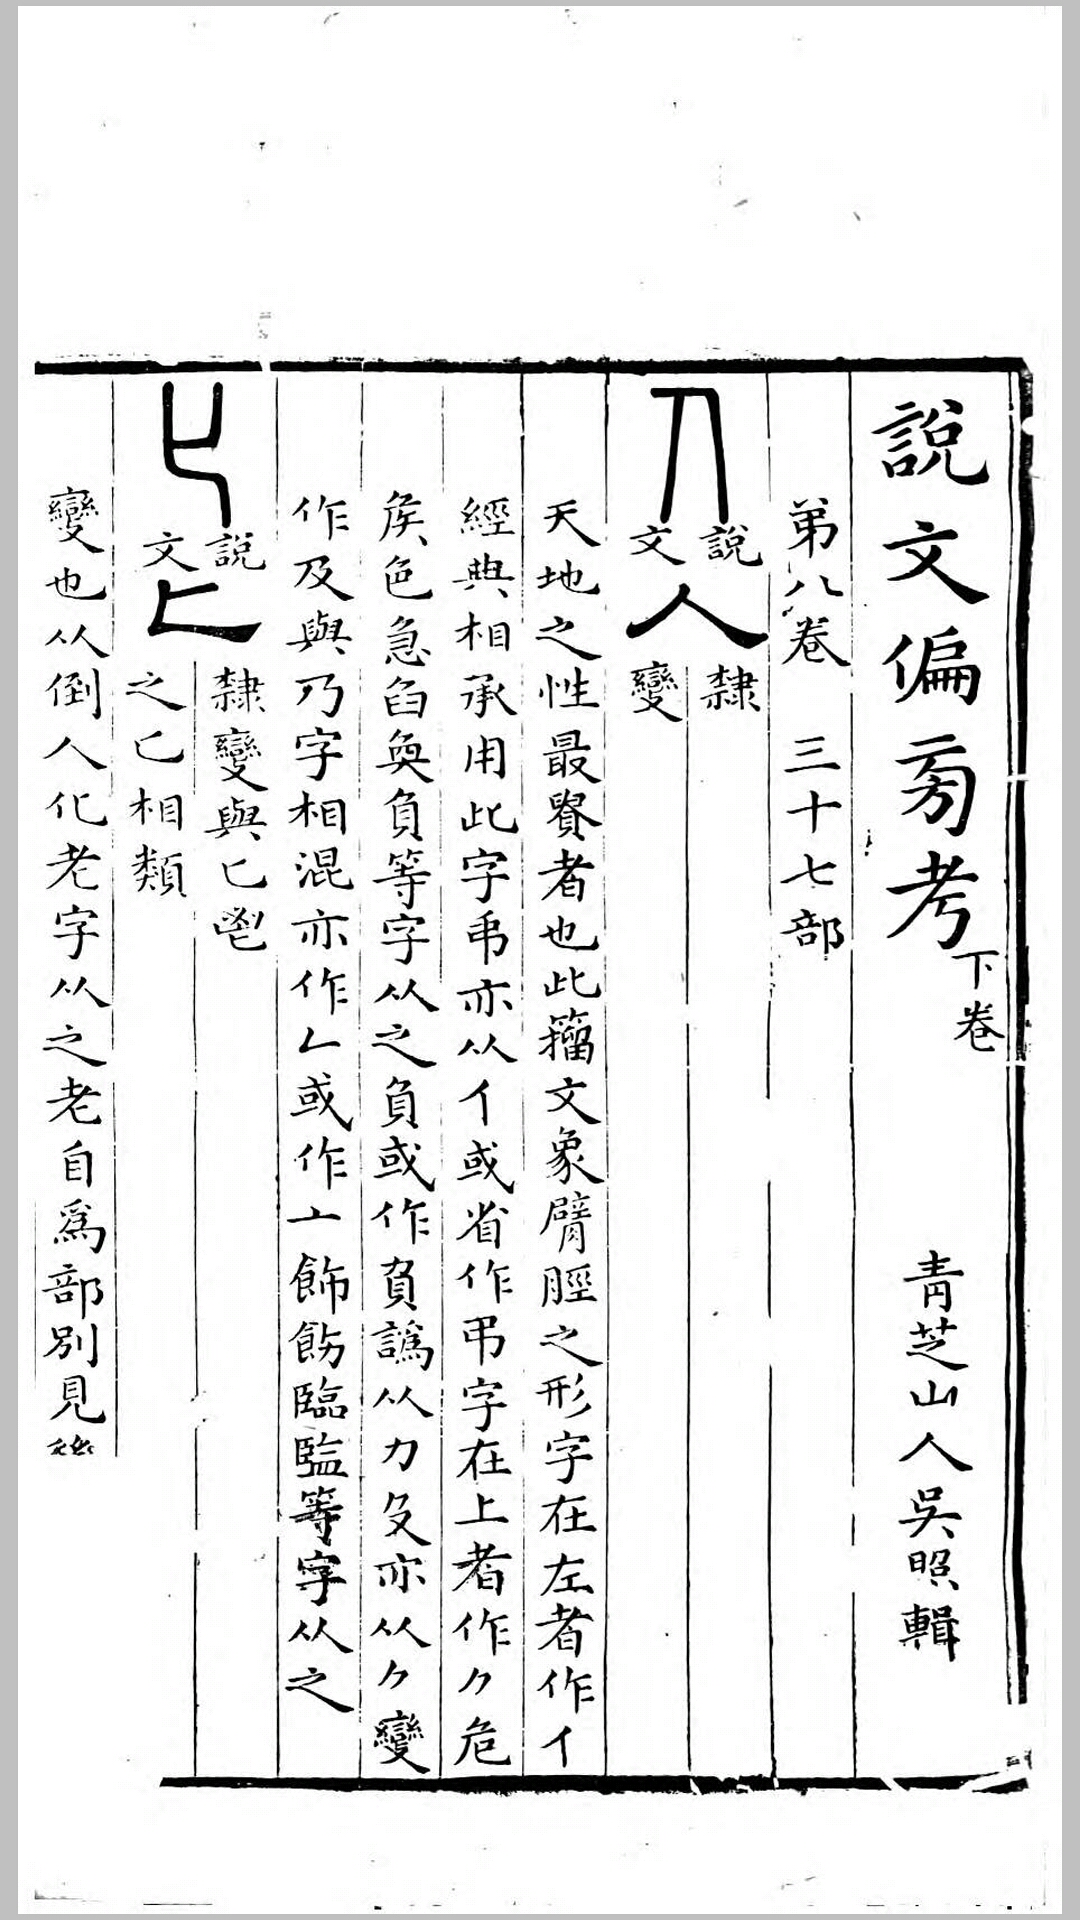 說文偏㫄考下卷 青芝山人吳照輯
弟八卷 三十七部
說文 人 隸變
天地之性最貴者也此籒文象臂脛之形字在左者作亻
經典相承用此字弔亦从亻或省作弔字在上者作⺈危
矦色急臽奐負等字从之負或作負譌从力及亦从⺈變
作及與乃字相混亦作𠂉或作亠飾飭臨監等字从之
說文 匕 隸變與匕鬯之匕相類
變也从倒人化老字从之老自爲部別見